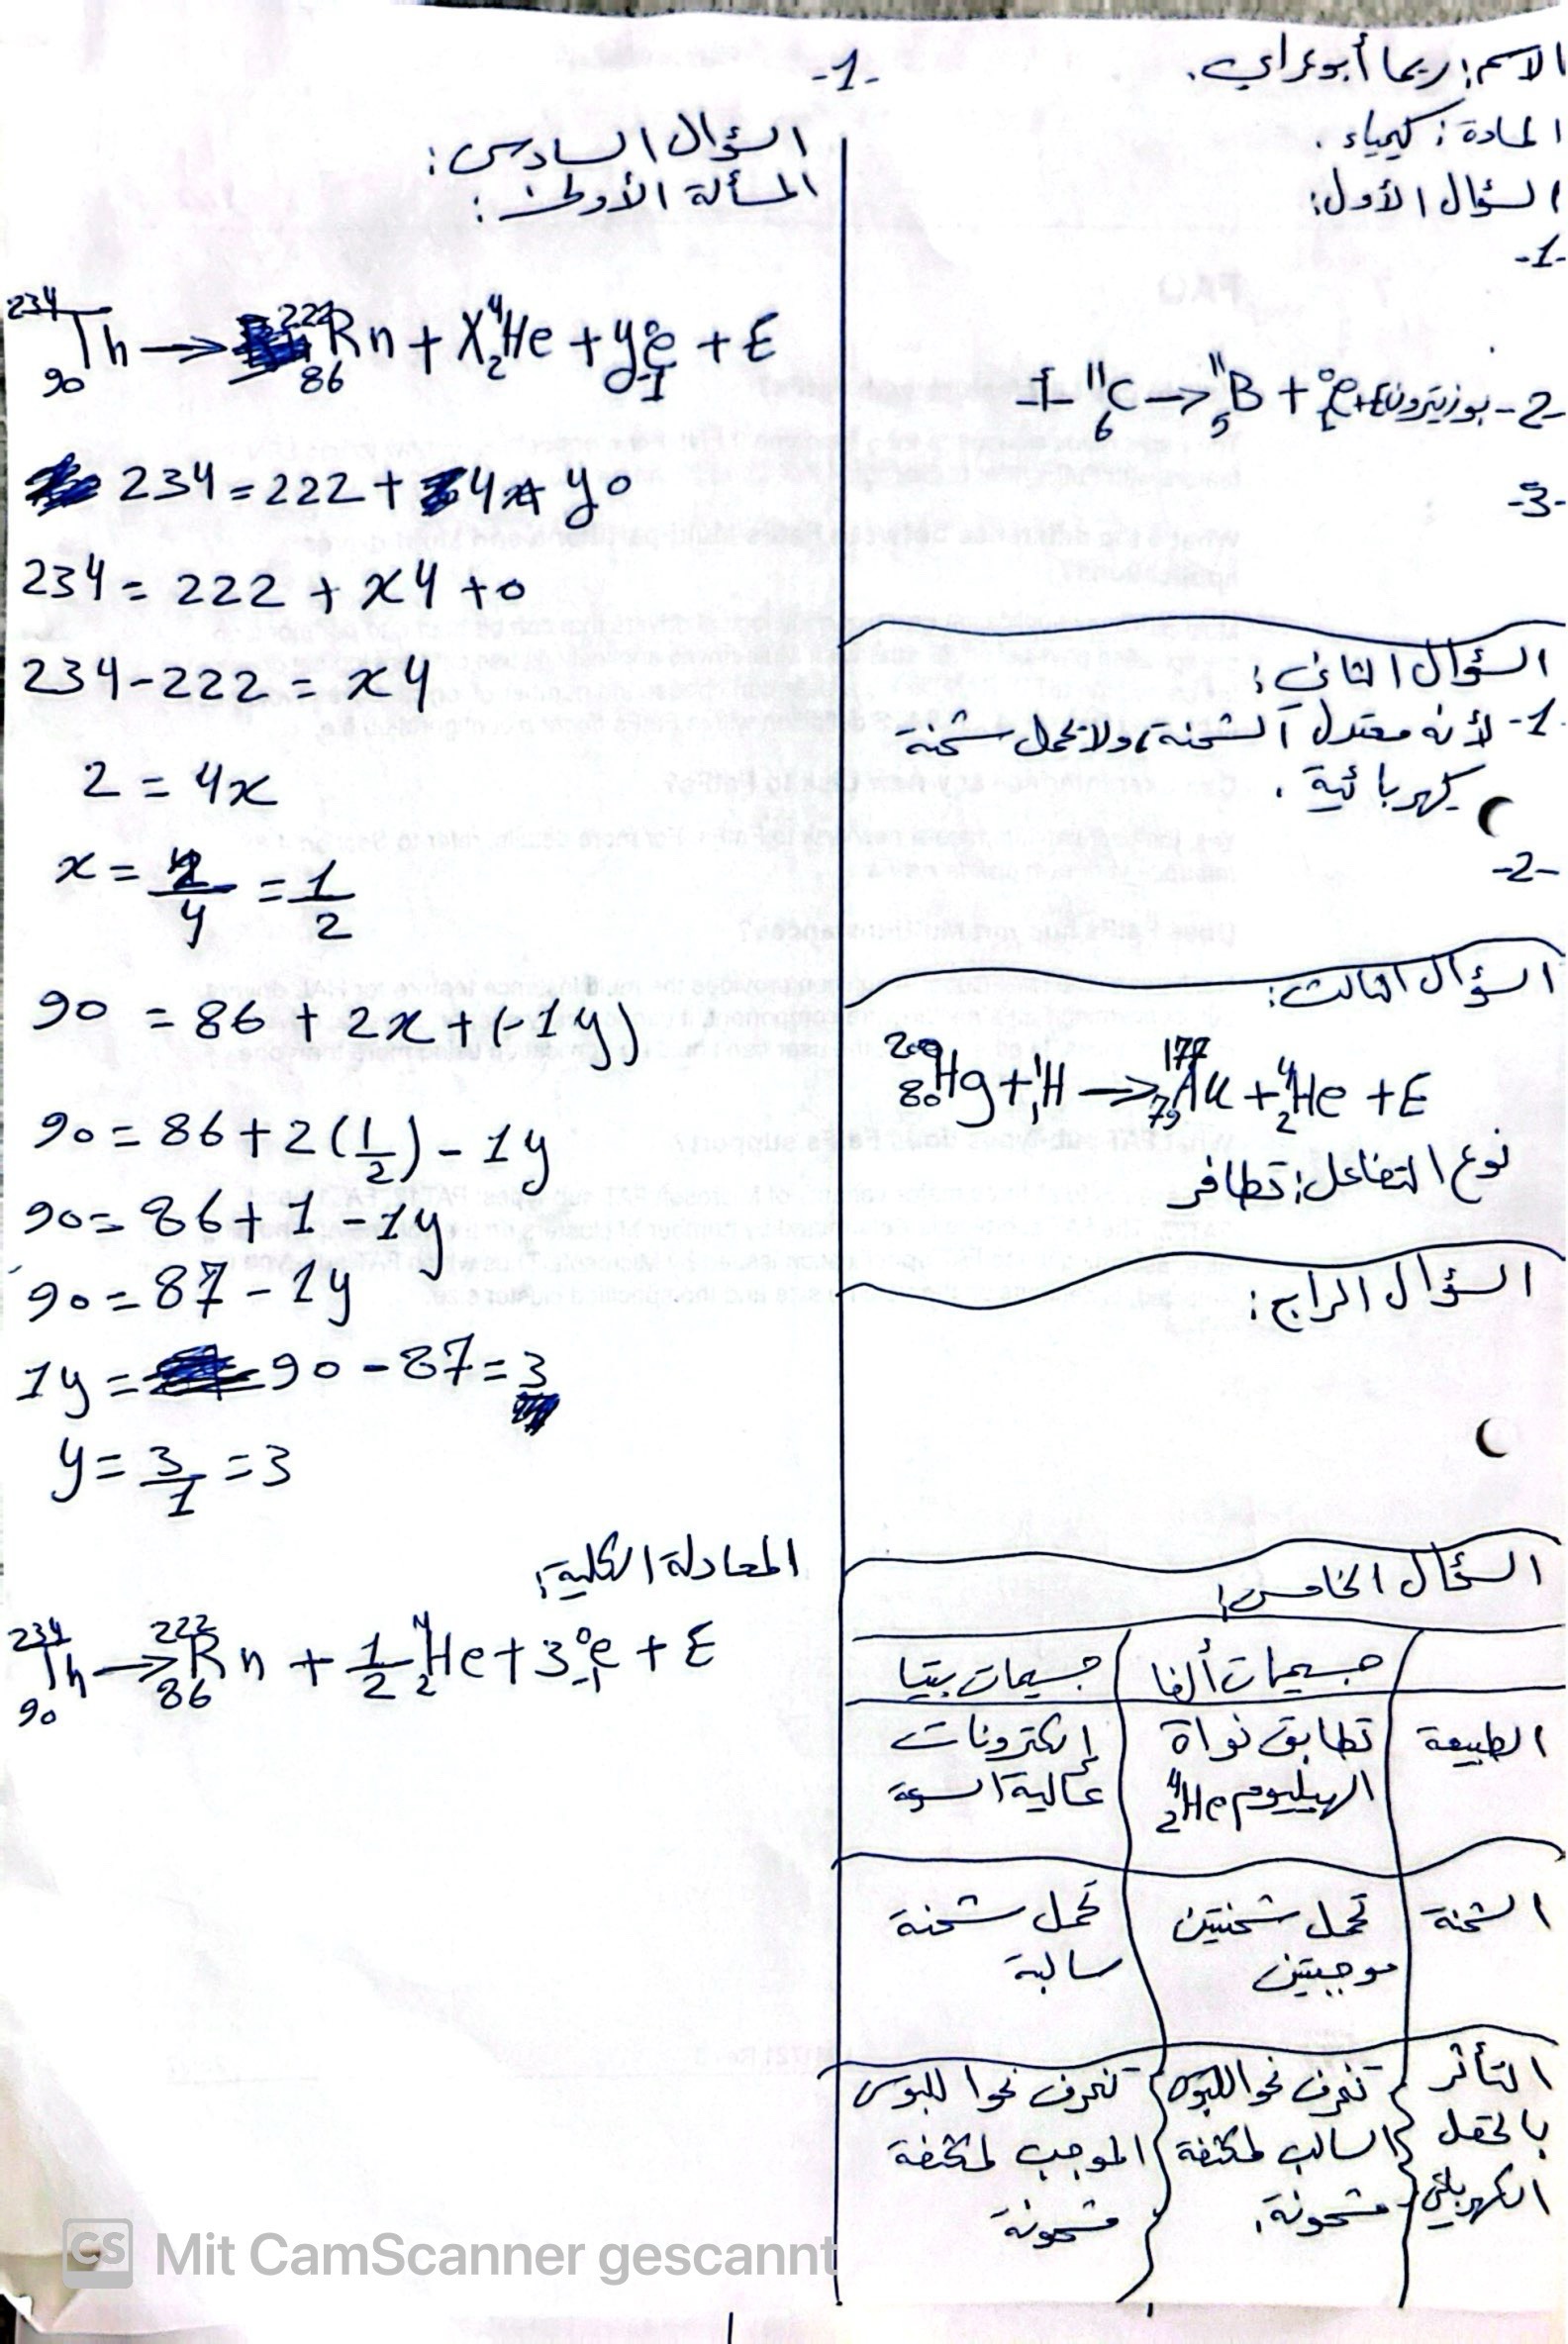 -1-
الاسم: ريما أبو عراي.
المادة: كيمياء.
السؤال الأول:
-1-
-2- بوزيترون -I- ¹¹₆C → ¹¹₅B + ⁰₁e + E
-3-
السؤال الثاني:
-1- لأنه معتدل الشحنة، ولا يحمل شحنة
كهربائية.
-2-
السؤال الثالث:
²⁰⁰₈₀Hg + ¹₁H → ¹⁹⁷₇₉Au + ⁴₂He + E
نوع التفاعل: تطافر
السؤال الرابع:
السؤال الخامس:
جسيمات ألفا جسيمات بيتا
الطبيعة تطابق نواة الهيليوم ⁴₂He إلكترونات عالية السرعة
الشحنة تحمل شحنتين موجبتين تحمل شحنة سالبة
التأثر بالحقل الكهربائي تنحرف نحو اللبوس السالب لمكثفة مشحونة. تنحرف نحو اللبوس الموجب لمكثفة مشحونة
السؤال السادس:
المسألة الأولى:
²³⁴₉₀Th → ²²²₈₆Rn + X⁴₂He + y⁰₋₁e + E
234 = 222 + 4x + y0
234 = 222 + x4 + 0
234 - 222 = x4
2 = 4x
x = 2/4 = 1/2
90 = 86 + 2x + (-1y)
90 = 86 + 2(1/2) - 1y
90 = 86 + 1 - 1y
90 = 87 - 1y
1y = 90 - 87 = 3
y = 3/1 = 3
المعادلة الكلية:
²³⁴₉₀Th → ²²²₈₆Rn + 1/2 ⁴₂He + 3⁰₋₁e + E
CS Mit CamScanner gescannt